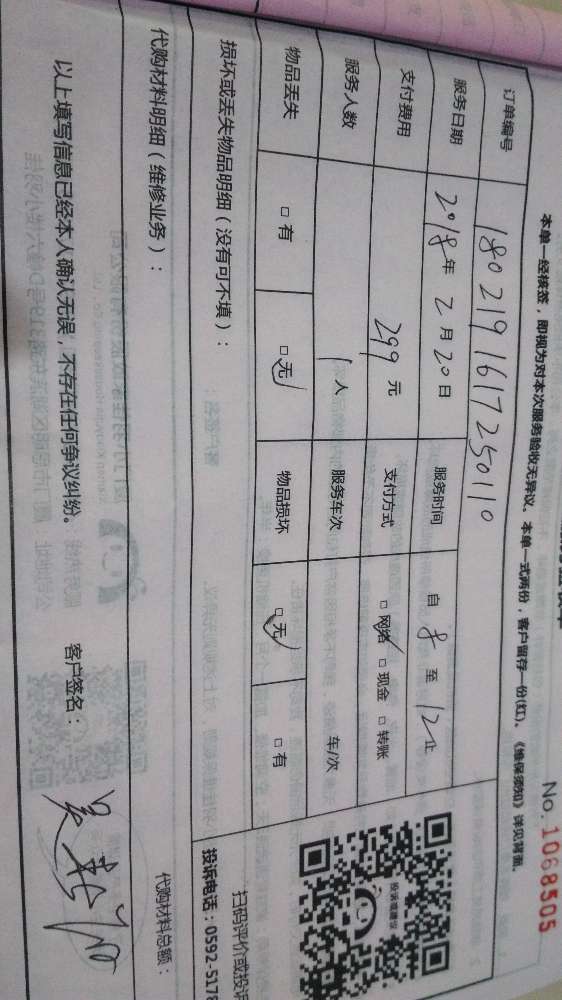 No. 1068505
本单一经核签，即视为对本次服务验收无异议、本单一式两份，客户留存一份(红)。《维保须知》详见背面。
订单编号 1802191617250110
服务日期 2018年2月20日 服务时间 自 8 至 12 止
支付费用 299 元 支付方式 □网络 □现金 □转账
服务人数 1 人 服务车次 车/次
物品丢失 □有 □无 物品损坏 □无 □有
损坏或丢失物品明细（没有可不填）：
投诉或建议
扫码评价或投诉
投诉电话：0592-5178
代购材料明细（维修业务）： 代购材料总额：
以上填写信息已经本人确认无误，不存在任何争议纠纷。 客户签名：